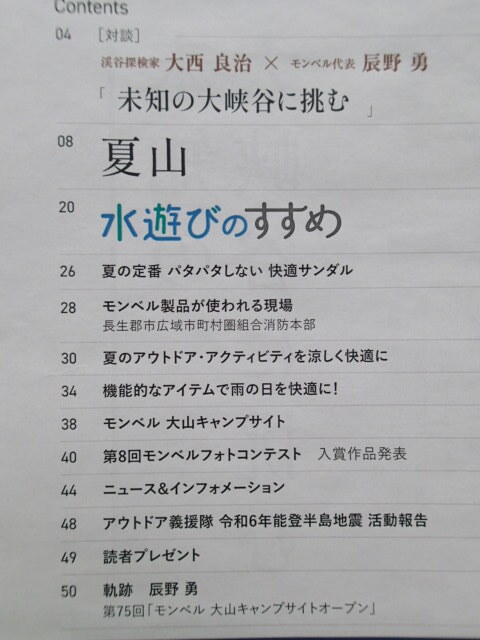 Contents
04 [対談]
渓谷探検家 大西 良治 × モンベル代表 辰野 勇
「未知の大峡谷に挑む」
08 夏山
20 水遊びのすすめ
26 夏の定番 パタパタしない 快適サンダル
28 モンベル製品が使われる現場
長生郡市広域市町村圏組合消防本部
30 夏のアウトドア・アクティビティを涼しく快適に
34 機能的なアイテムで雨の日を快適に!
38 モンベル 大山キャンプサイト
40 第8回モンベルフォトコンテスト 入賞作品発表
44 ニュース&インフォメーション
48 アウトドア義援隊 令和6年能登半島地震 活動報告
49 読者プレゼント
50 軌跡 辰野 勇
第75回「モンベル 大山キャンプサイトオープン」